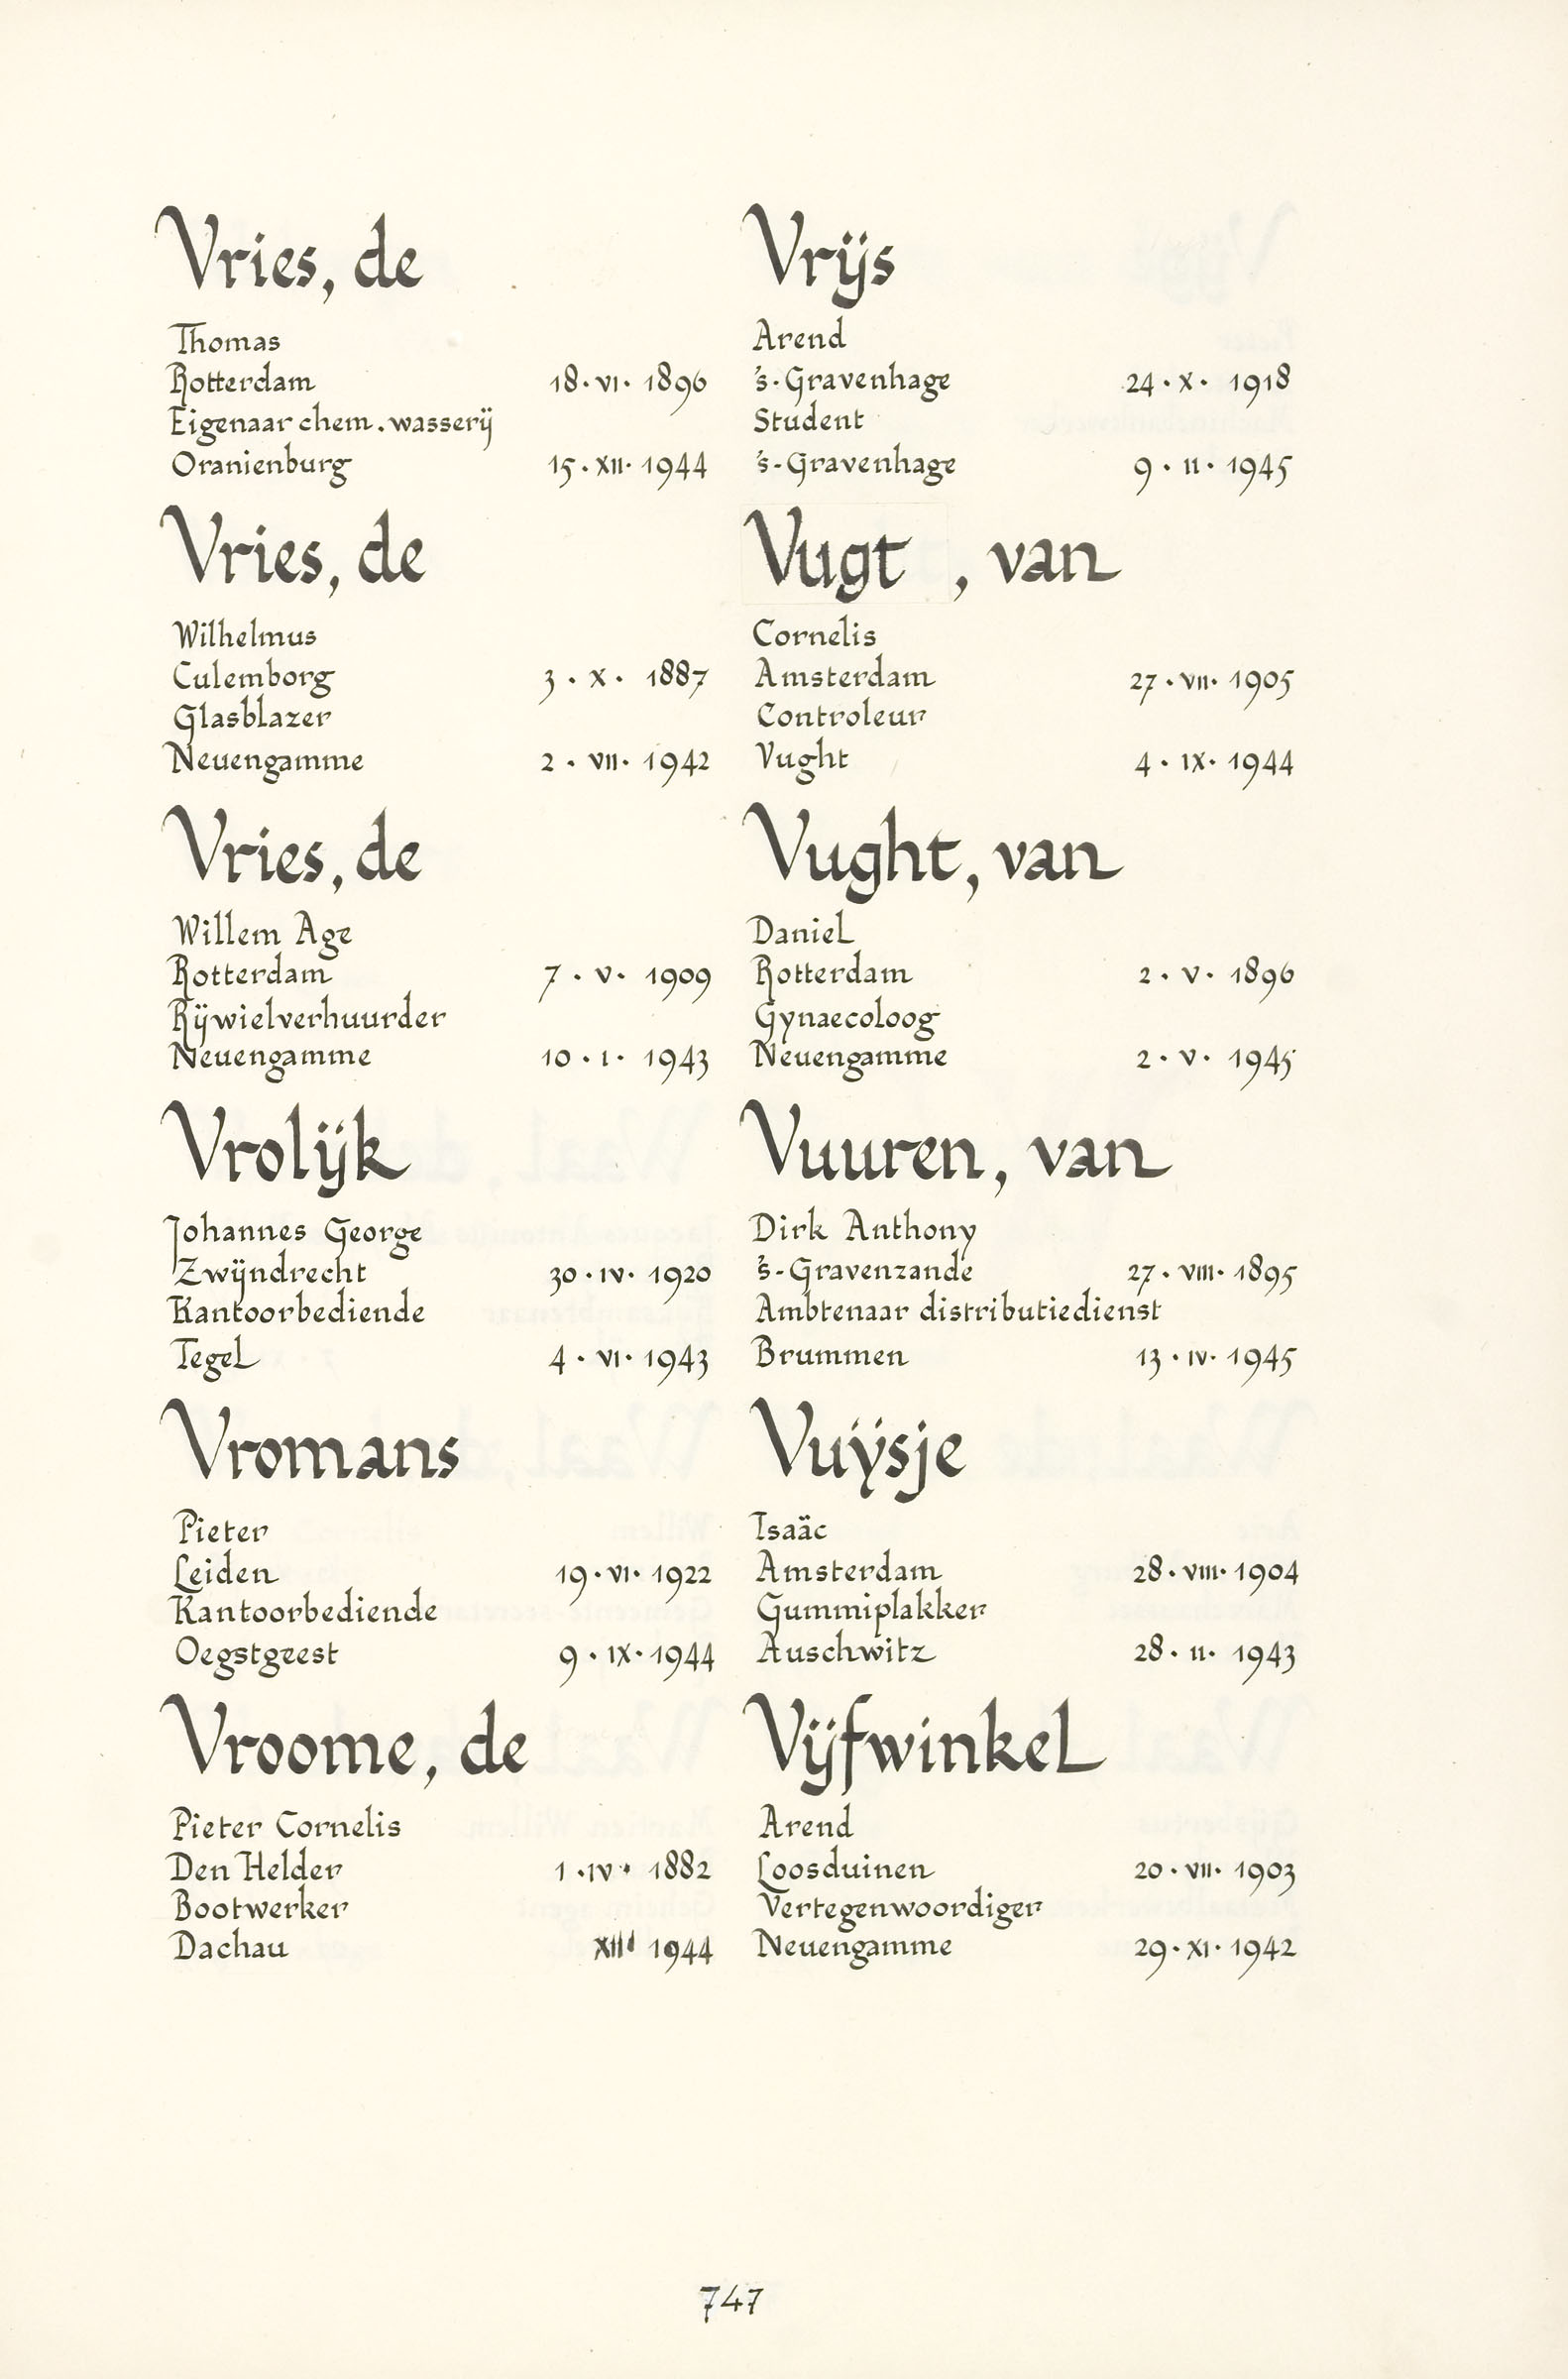 Vries, de
Thomas
Rotterdam 18 · VI · 1896
Eigenaar chem. wasserij
Oranienburg 15 · XII · 1944
Vries, de
Wilhelmus
Culemborg 3 · X · 1887
Glasblazer
Neuengamme 2 · VII · 1942
Vries, de
Willem Age
Rotterdam 7 · V · 1909
Rijwielverhuurder
Neuengamme 10 · I · 1943
Vrolijk
Johannes George
Zwijndrecht 30 · IV · 1920
Kantoorbediende
Tegel 4 · VI · 1943
Vromans
Pieter
Leiden 19 · VI · 1922
Kantoorbediende
Oegstgeest 9 · IX · 1944
Vroome, de
Pieter Cornelis
Den Helder 1 · IV · 1882
Bootwerker
Dachau XII 1944
Vrijs
Arend
's-Gravenhage 24 · X · 1918
Student
's-Gravenhage 9 · II · 1945
Vugt , van
Cornelis
Amsterdam 27 · VII · 1905
Controleur
Vught 4 · IX · 1944
Vught, van
Daniel
Rotterdam 2 · V · 1896
Gynaecoloog
Neuengamme 2 · V · 1945
Vuuren, van
Dirk Anthony
's-Gravenzande 27 · VIII · 1895
Ambtenaar distributiedienst
Brummen 13 · IV · 1945
Vuÿsje
Isaäc
Amsterdam 28 · VIII · 1904
Gummiplakker
Auschwitz 28 · II · 1943
Vijfwinkel
Arend
Loosduinen 20 · VII · 1903
Vertegenwoordiger
Neuengamme 29 · XI · 1942
747